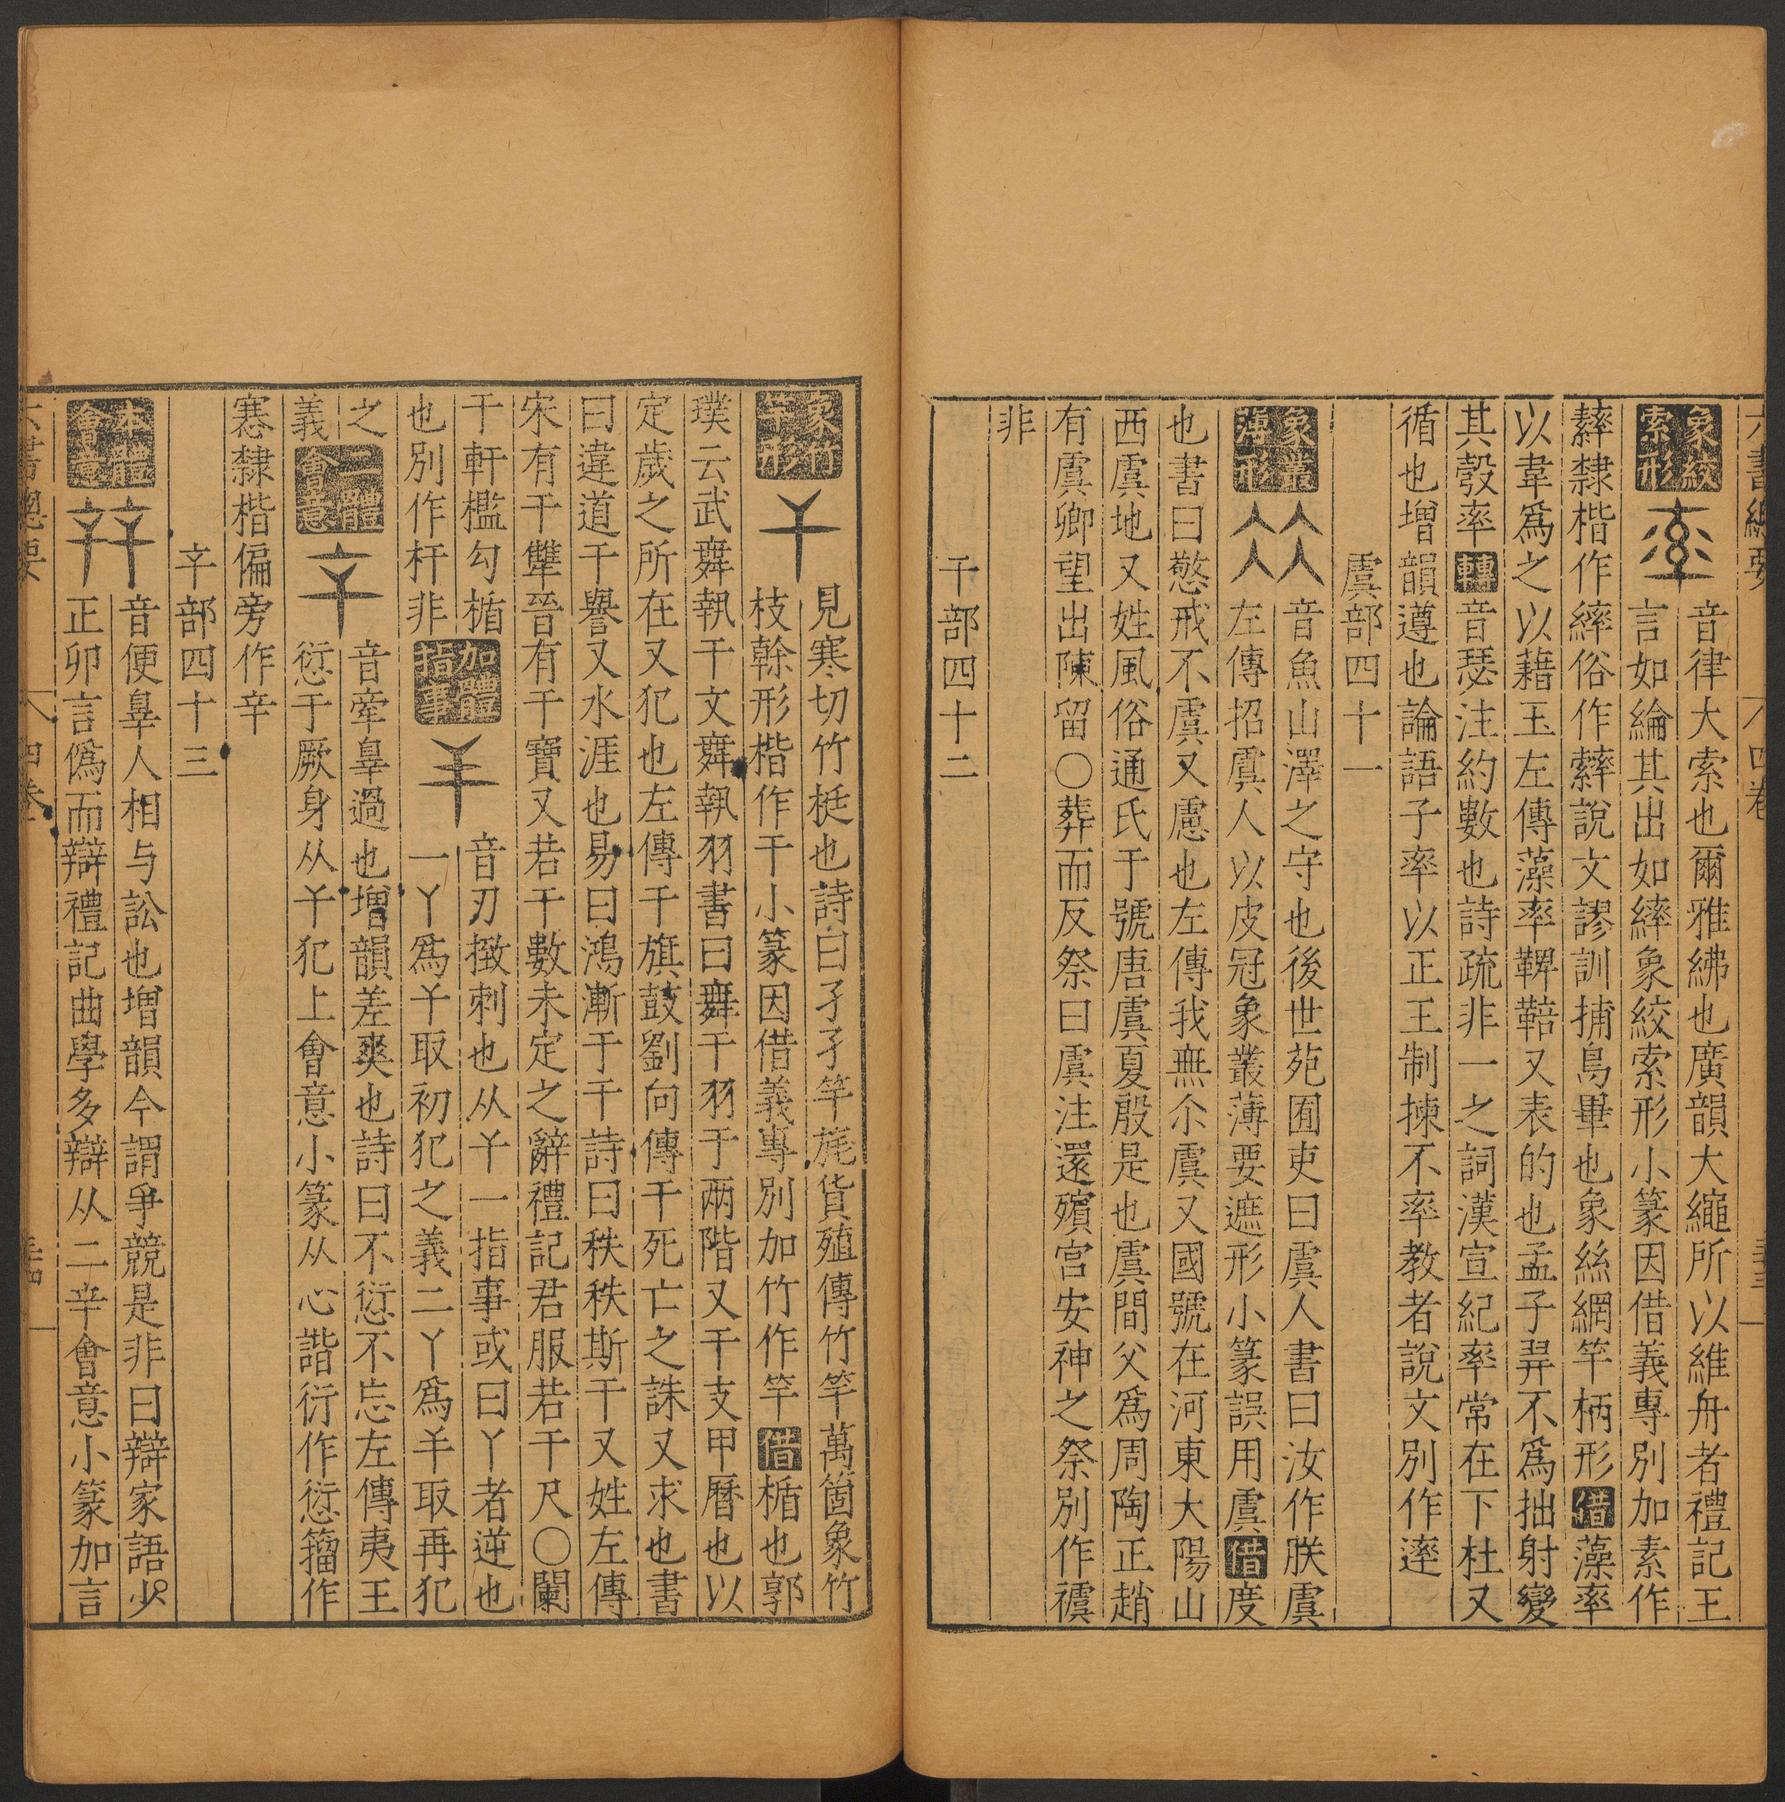 六書總要 四卷
象絞索形 音律大索也爾雅紼也廣韻大繩所以維舟者禮記王
言如綸其出如繂象絞索形小篆因借義專別加素作
𦄂隸楷作繂俗作䋖說文謬訓捕鳥畢也象絲網竿柄形借藻率
以韋爲之以藉玉左傳藻率鞞鞛又表的也孟子羿不爲拙射變
其彀率轉音瑟注約數也詩疏非一之詞漢宣紀率常在下杜又
循也增韻遵也論語子率以正王制揀不率教者說文別作逹
虞部四十一
象叢薄形 音魚山澤之守也後世苑囿吏曰虞人書曰汝作朕虞
左傳招虞人以皮冠象叢薄要遮形小篆誤用虞借度
也書曰憖戒不虞又慮也左傳我無尒虞又國號在河東大陽山
西虞地又姓風俗通氏于號唐虞夏殷是也虞間父爲周陶正趙
有虞卿望出陳留○葬而反祭曰虞注還殯宮安神之祭別作𧝓
非
干部四十二
象竹竿形 見寒切竹梃也詩曰孑孑竿旄貨殖傳竹竿萬箇象竹
枝榦形楷作干小篆因借義專別加竹作竿借楯也郭
璞云武舞執干文舞執羽書曰舞干羽于兩階又干支甲曆也以
定歲之所在又犯也左傳干旗鼓劉向傳干死亡之誅又求也書
曰違道干譽又水涯也易曰鴻漸于干詩曰秩秩斯干又姓左傳
宋有干犨晉有干寶又若干數未定之辭禮記君服若干尺○闌
干軒檻勾楯
也別作杆非 加體指事 音刃㨖刺也从干一指事或曰丫者逆也
一丫爲干取初犯之義二丫爲𢆉取再犯
之
義 二體會意 音愆辠過也增韻差爽也詩曰不愆不忘左傳夷王
愆于厥身从干犯上會意小篆从心諧衍作愆籀作
㥶隸楷偏旁作辛
辛部四十三
本體會意 音便辠人相与訟也增韻今謂爭競是非曰辯家語少
正卯言僞而辯禮記曲學多辯从二辛會意小篆加言
六書總要 四卷